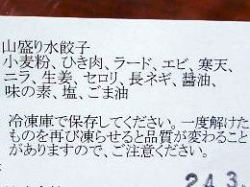 山盛り水餃子
小麦粉、ひき肉、ラード、エビ、寒天、
ニラ、生姜、セロリ、長ネギ、醤油、
味の素、塩、ごま油
冷凍庫で保存してください。一度解けた
ものを再び凍らせると品質が変わること
がありますので、ご注意ください。
24.3.